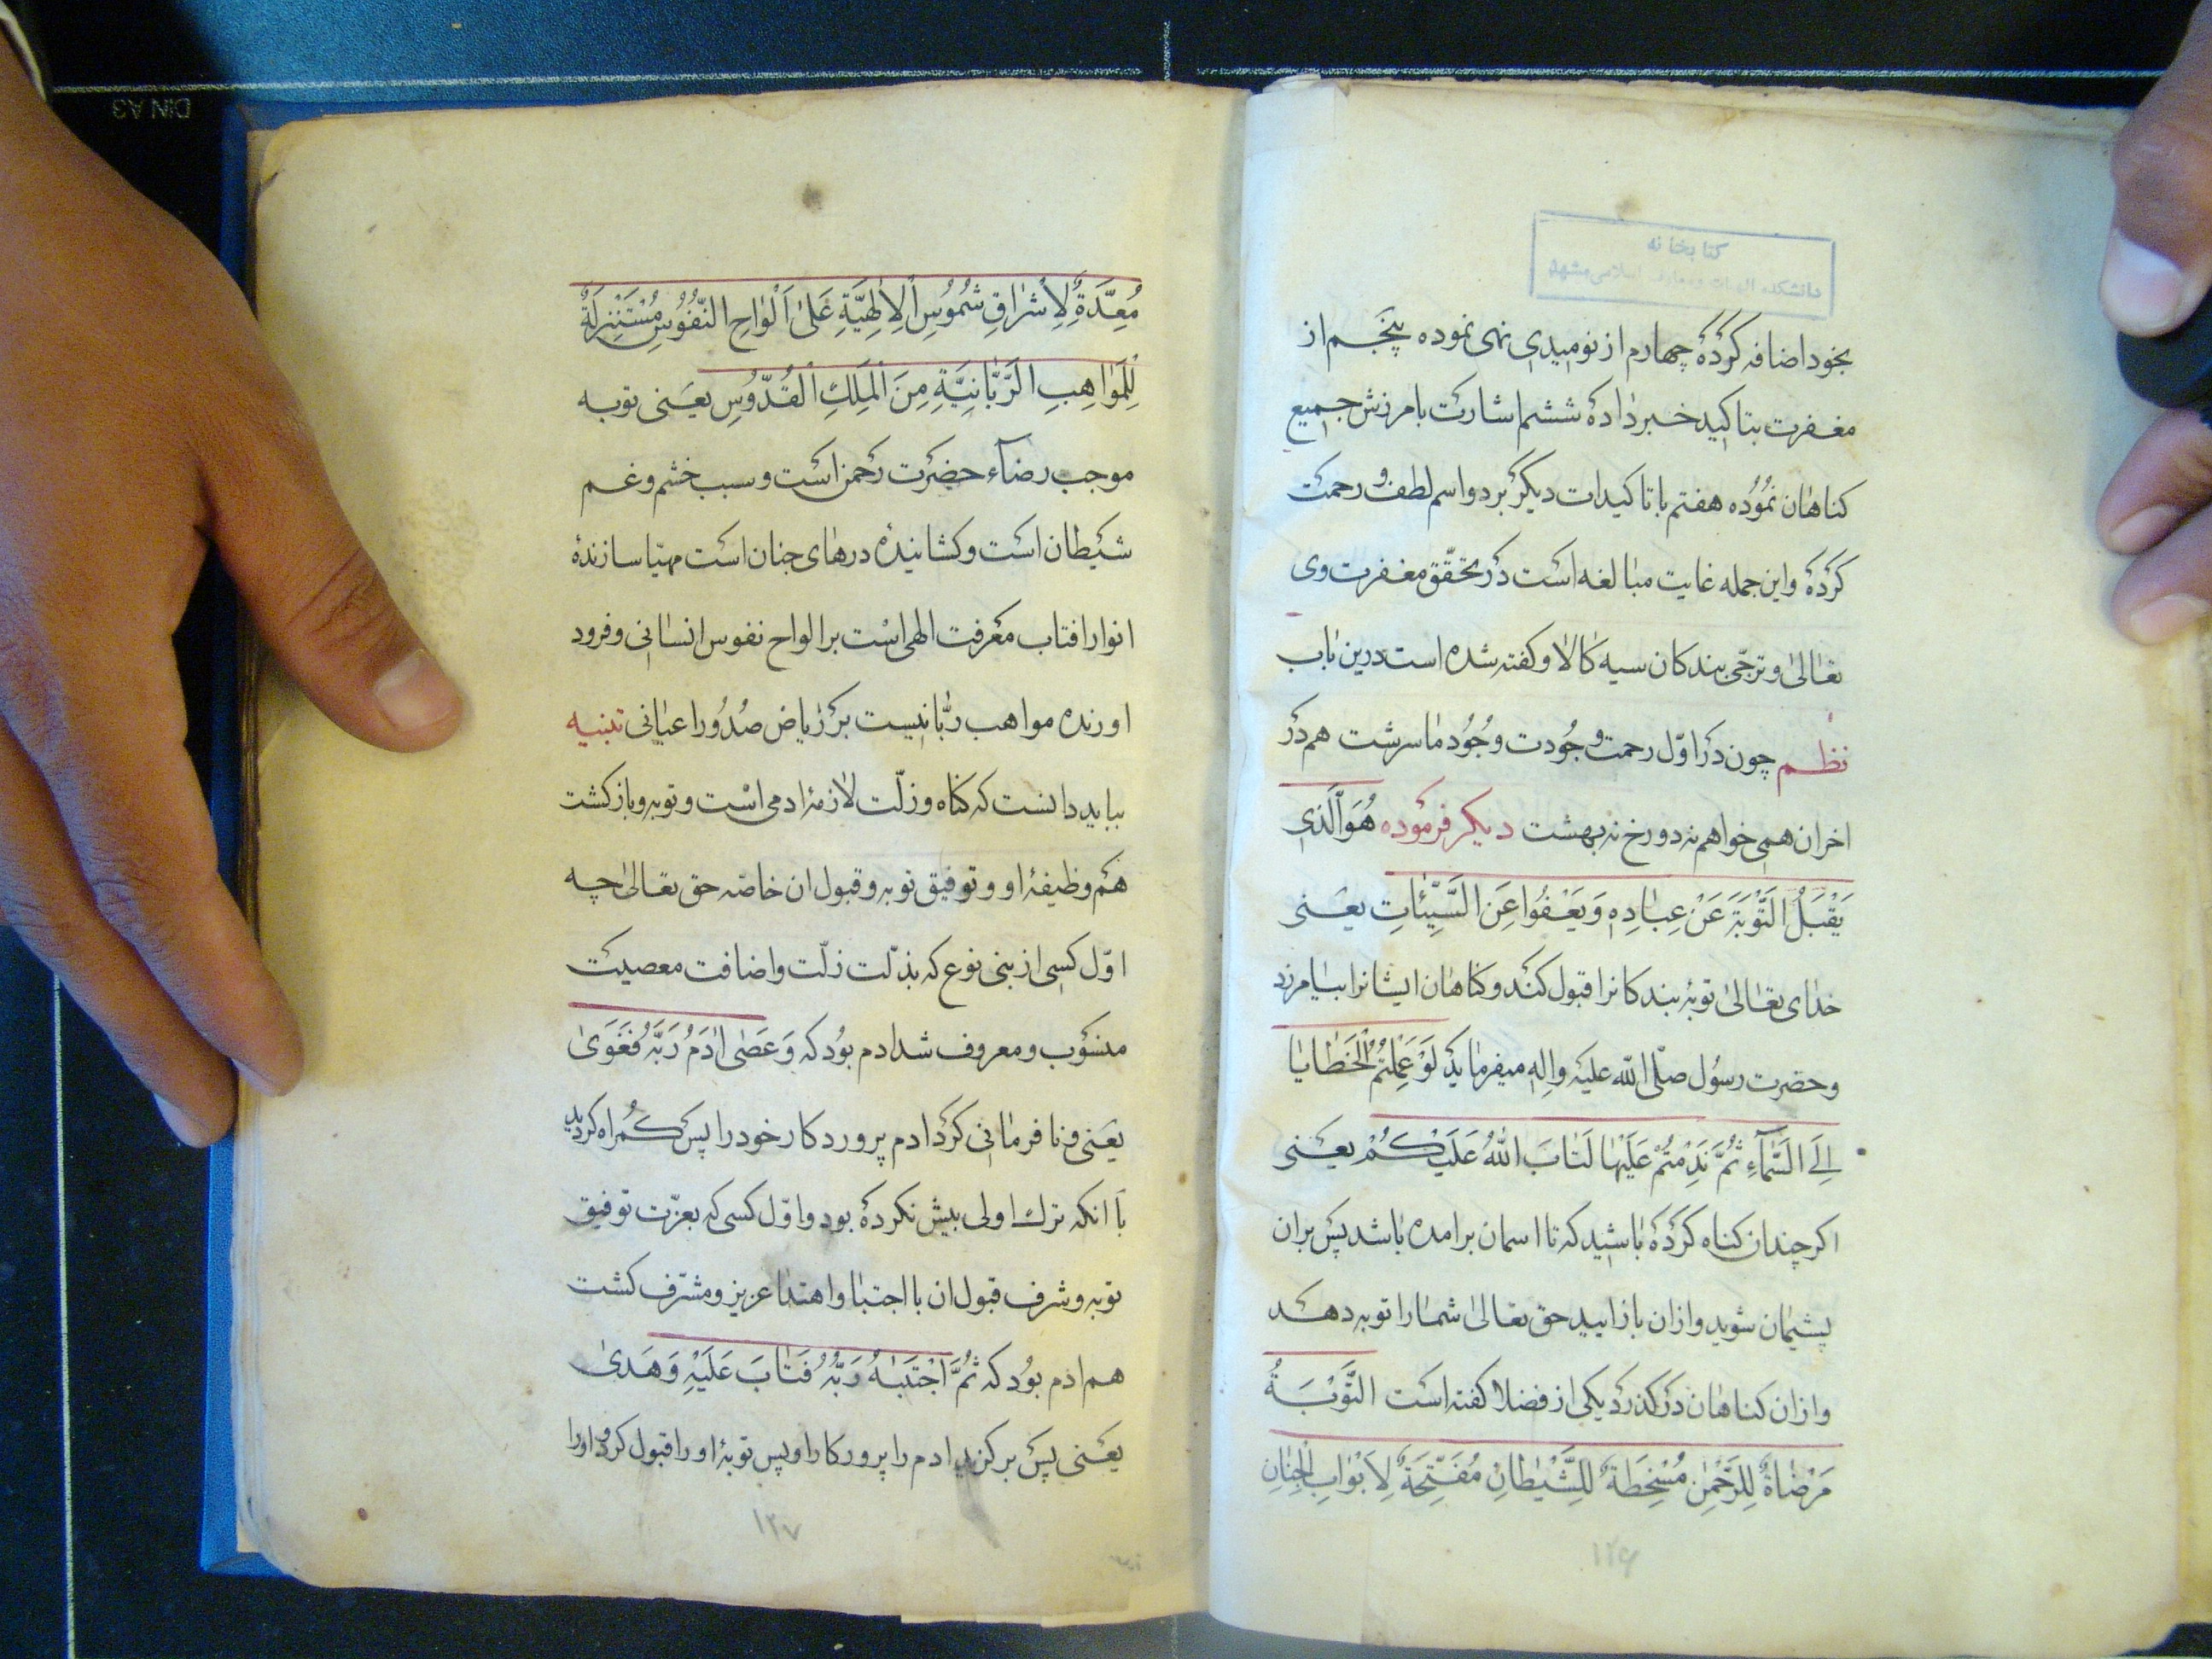 کتابخانه
دانشکده الهیات و معارف اسلامی مشهد
بخود اضافه کرده چهارم از نومیدی نهی نموده پنجم از
مغفرت بتاکید خبر داده ششم اشارت بامرزش جمیع
کناهان نموده هفتم با تاکیدات دیکر بر دو اسم لطف و رحمت
کرده و این جمله غایت مبالغه است در تحقّق مغفرت وی
تعالیٰ و ترجّی بندکان سیه کالا و کفته شده است درین باب
نظم چون در اوّل رحمت و جُودت وجُود ما سرشت هم در
اخر ان همی خواهم نه دورخ نه بهشت دیکر فرموده هُوَ الَّذی
یَقْبَلُ التَّوْبَةَ عَنْ عِبادِهِ وَیَعْفُوا عَنِ السَّیِّئاتِ یعنی
خدای تعالیٰ توبهٔ بندکانرا قبول کند و کناهان ایشانرا بیامرزد
و حضرت رسُول صلّی الله علیه واله میفرماید لَوْ عَمِلْتُمُ الْخَطایا
اِلَی السَّمآءِ ثُمَّ نَدِمْتُمْ عَلَیْها لَتابَ اللهُ عَلَیْکُمْ یعنی
اکر چندان کناه کرده باشید که تا اسمان برامده باشد پس بران
پشیمان شوید و ازان باز ایید حق تعالیٰ شما را توبه دهد
و ازان کناهان درکذرد یکی از فضلا کفته است التَّوْبَةُ
مَرْضاةٌ لِلرَّحْمٰنِ مُسْخِطَةٌ لِلشَّیْطانِ مُفَتِّحَةٌ لِاَبْوابِ الْجِنانِ
۱۲۶
مُعِدَّةٌ لِاِشْراقِ شُمُوسِ الْاِلٰهِیَّةِ عَلیٰ اَلْواحِ النُّفُوسِ مُسْتَنْزِلَةٌ
لِلْمَواهِبِ الرَّبّانِیَّةِ مِنَ الْمَلِکِ الْقُدُّوسِ یعنی توبه
موجب رضآء حضرت رحمن است و سبب خشم و غم
شیطان است و کشایندهٔ درهای جنان است مهیّا سازندهٔ
انوار افتاب معرفت الهی است بر الواح نفوس انسانی و فرود
اورنده مواهب ربّانیست بر ریاض صُدُور اعیانی تنبیه
بباید دانست که کناه و زلّت لازمهٔ ادمی است و توبه و بازکشت
هم وظیفهٔ او و توفیق توبه و قبول ان خاصّه حق تعالیٰ چه
اوّل کسی از بنی نوع که بذلّت زلّت و اضافت معصیت
منسوب و معروف شد ادم بود که وَعَصیٰ ادَمُ رَبَّهُ فَغَویٰ
یعنی و نا فرمانی کرد ادم پروردکار خود را پس کمراه کردید
با انکه ترک اولی بیش نکرده بود و اوّل کسی که بعزّت توفیق
توبه و شرف قبول ان با اجتبا و اهتدا عزیز و مشرّف کشت
هم ادم بود که ثُمَّ اجْتَبٰهُ رَبُّهُ فَتابَ عَلَیْهِ وَهَدیٰ
یعنی پس برکزید ادم را پرورکار او پس توبهٔ او را قبول کرد و اورا
۱۲۷
DIN A3